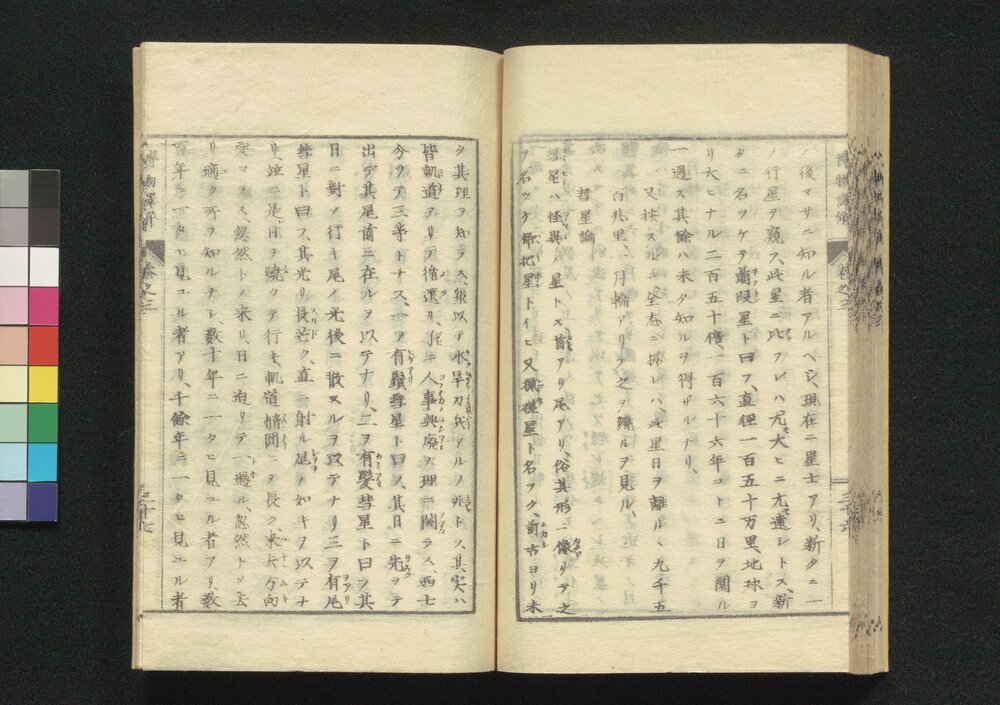 後マサニ知ル者アルベシ、現在ニ星士アリ、新タニ一
ノ行星ヲ窺フ、此星ニ比フレハ尤大ヒニ尤遠シトス、新
タニ名ツケテ蕭段星ト曰フ、直徑一百五十万里、地球ヨ
リ大ヒナル二百五十倍、一百六十六年コトニ日ヲ圜ル
一過ス、其餘ハ未タ知ルヲ得ザルナリ、
又按スルニ全志ニ據レハ、此星日ヲ離ルヽ九千五
百兆里、一月輪アリテ之ヲ繞ルヲ見ル、
彗星論
彗星ハ怪異ノ星トス、首アリ尾アリ、俗其形ニ像リテ之
ヲ名ツケ掃把星ト作ヒ又攙搶星ト名ツク、前古ヨリ未
タ其理ヲ知ラス、象以テ水旱刀兵アルノ兆トス、其実ハ
皆軌道アリテ循還シ、絶ニ人事興廃ノ理ニ関ラス、西士
今分テ三等トナス、一ヲ有鬚彗星ト曰ス、其日ニ先ツテ
出デ其尾前ニ在ルヲ以テナリ、二ヲ有髮彗星ト曰フ其
日ニ對ノ行キ尾ノ光後ニ散スルヲ以テナリ三ヲ有尾
彗星ト曰フ、其光リ長芒ク、直ニ射ル尾ノ如キヲ以テナ
リ、竝ニ是レ日ヲ繞ツテ行キ、軌道橢圜ニノ長ク、來去方向
定マラス、忽然トノ来リ、日ニ迫リテ一過ル、忽然トシテ去
リ適ク所ヲ知ルナシ、数十年ニ一タヒ見ユル者アリ、数
百年ニ一タヒ見ユル者アリ、千餘年ニ一タヒ見ユル者
博物譯解
卷之三
三十六
博物譯解
卷之三
三十七